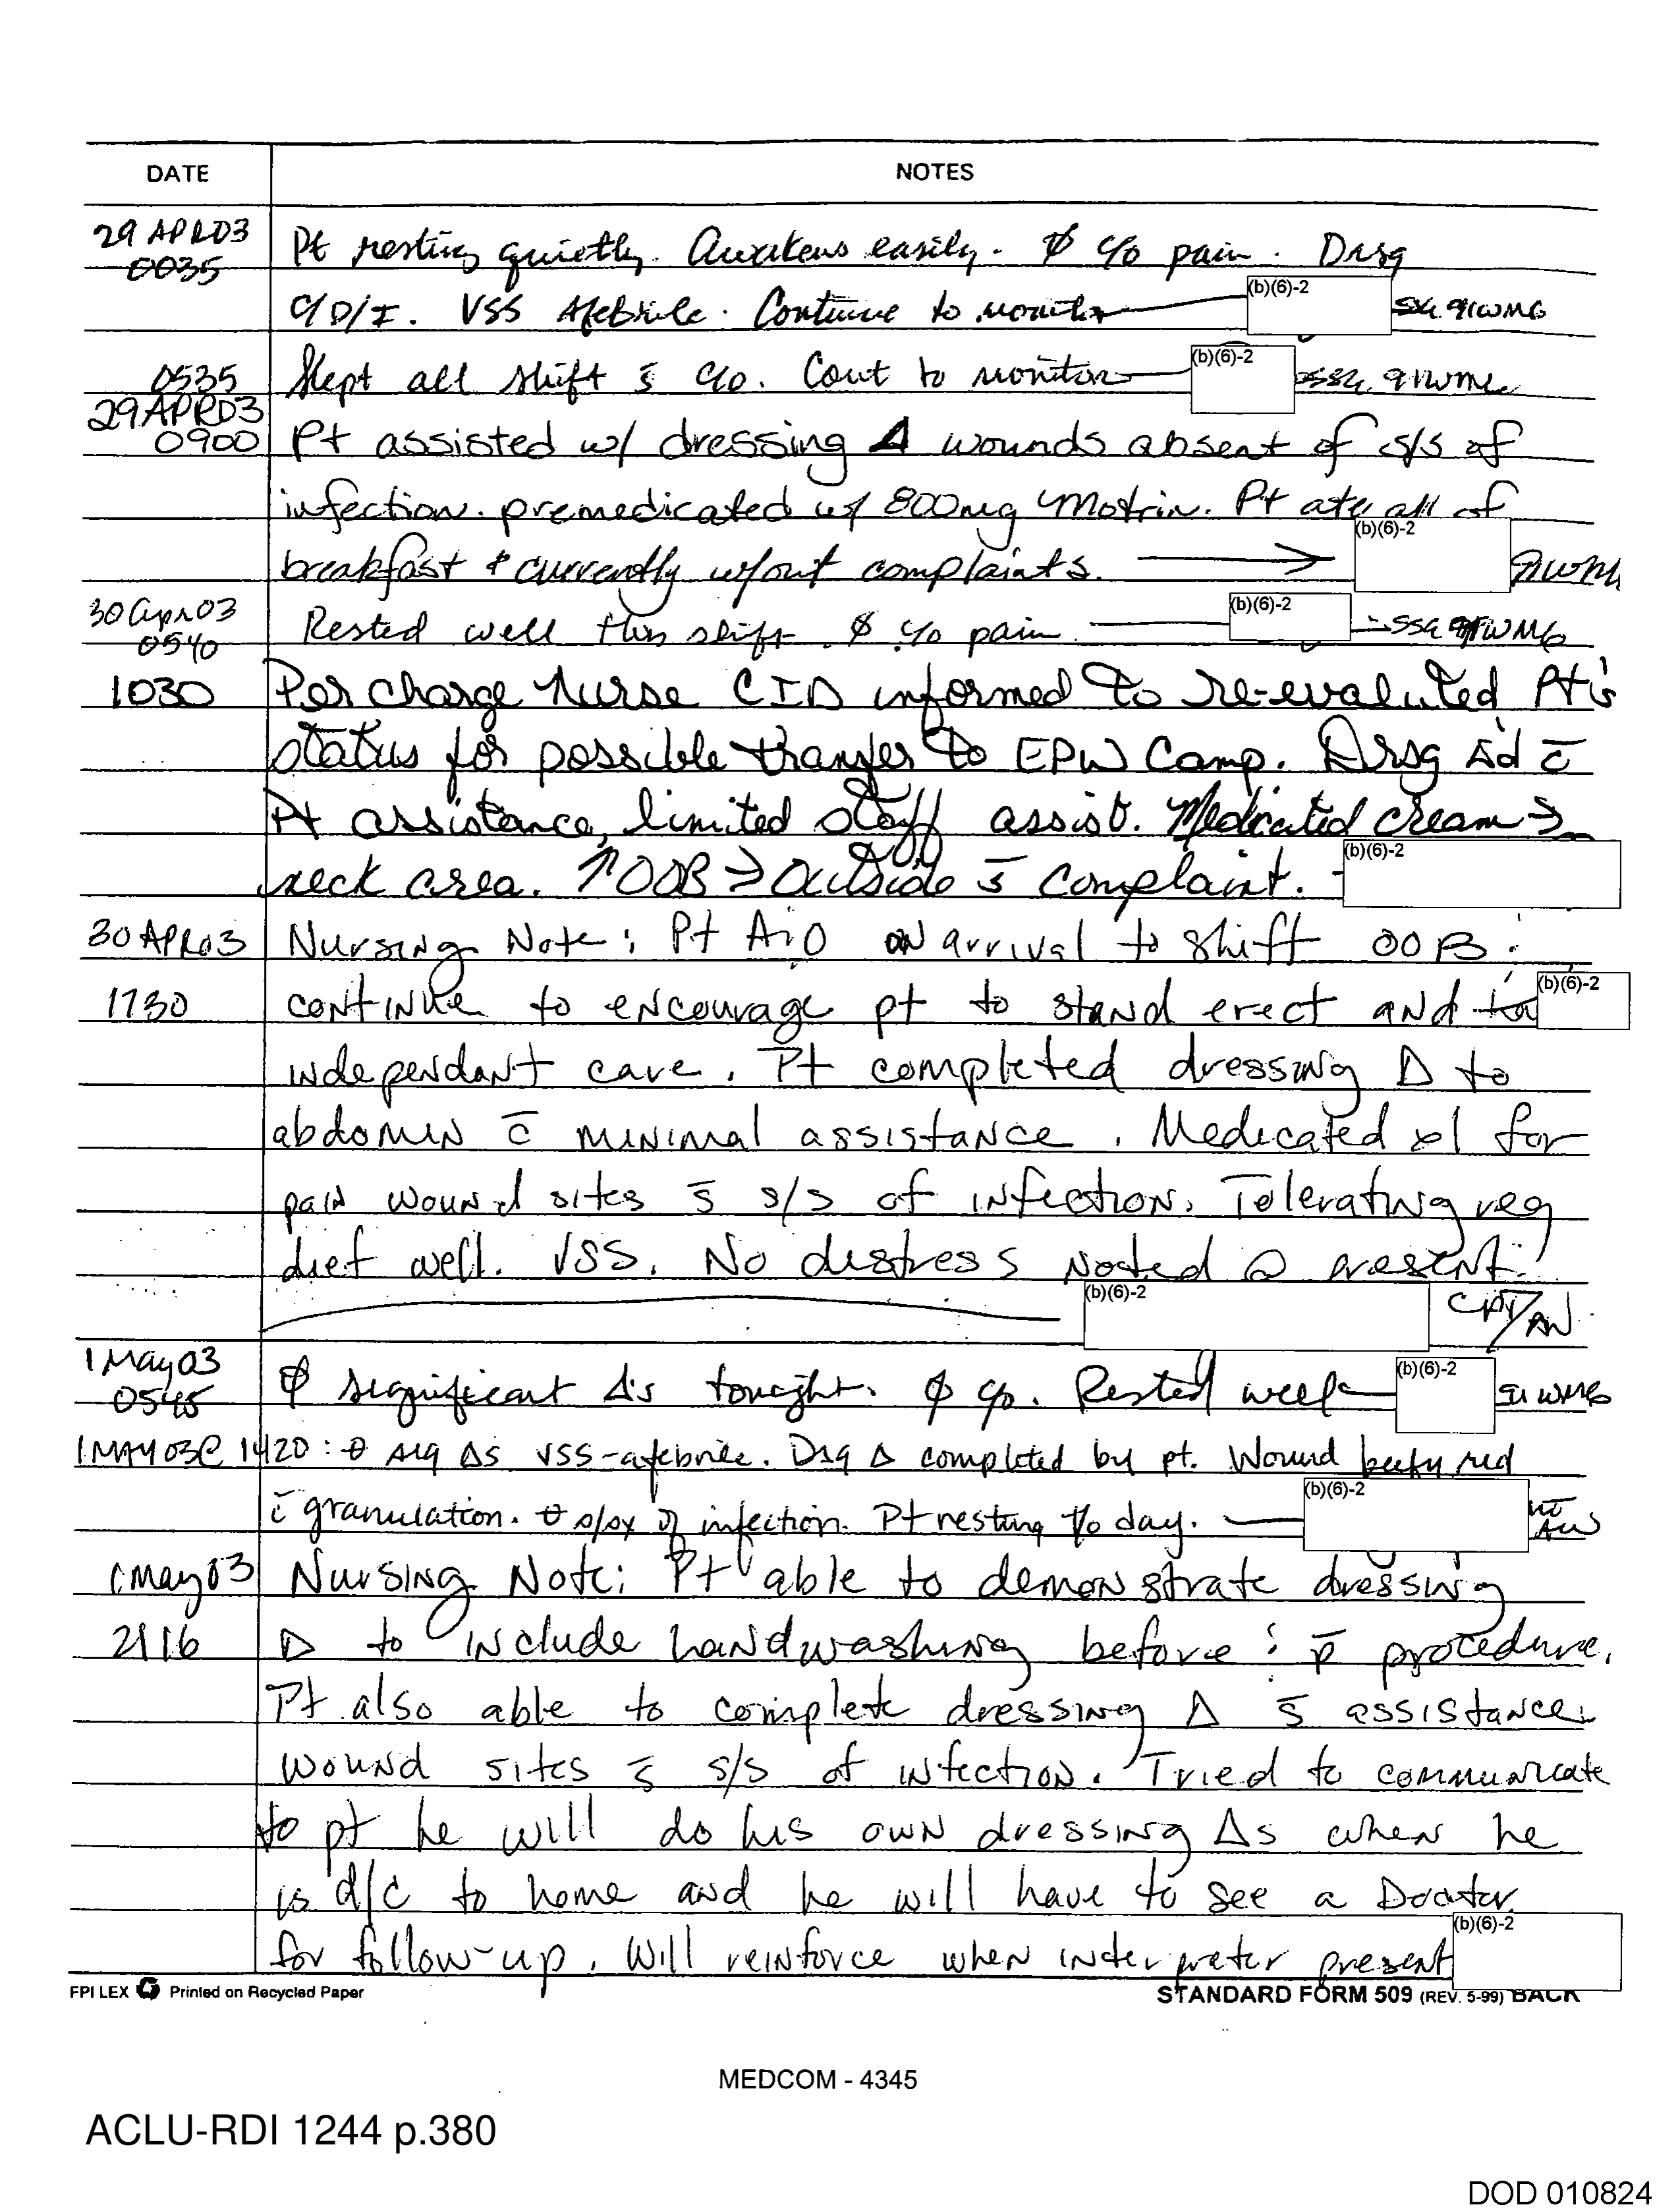 DATE NOTES
29 APR 03 Pt resting quietly. Awakens easily. ∅ c/o pain. Drsg
0035
C/D/I. VSS Afebrile. Continue to monitor (b)(6)-2 91WM6
0535 Slept all shift s̄ c/o. Cont to monitor (b)(6)-2
29 APR 03
0900 Pt assisted w/ dressing Δ wounds absent of s/s of
infection. premedicated w/ 800mg Motrin. Pt ate all of
breakfast & currently w/out complaints. → (b)(6)-2
30 Apr 03
0540 Rested well this shift. ∅ c/o pain (b)(6)-2 91WM6
1030 Per charge Nurse CID informed to re-evaluted Pt's
status for possible tranfer to EPW Camp. Drsg Δd c̄
Pt assistance, limited staff assist. Medicated cream →
neck area. ↑OOB → Outside s̄ complaint. (b)(6)-2
30 APR 03 Nursing Note: Pt A:O on arrival to shift OOB:
1730 continue to encourage pt to stand erect and (b)(6)-2
independant care. Pt completed dressing Δ to
abdomen c̄ minimal assistance. Medicated x1 for
pain wound sites s̄ s/s of infection. Tolerating reg
diet well. VSS. No distress noted @ present.
(b)(6)-2 CPT/AN
1 May 03
0545 ∅ significant Δ's tonight. ∅ c/o. Rested well (b)(6)-2 91WM6
1MAY03@ 1420: ∅ sig Δs VSS-afebrile. Dsg Δ completed by pt. Wound beefy red
c̄ granulation. ∅ s/sx of infection. Pt resting t/o day. (b)(6)-2
1 May 03 Nursing Note: Pt able to demonstrate dressing
2116 Δ to include handwashing before : p̄ procedure.
Pt also able to complete dressing Δ s̄ assistance.
wound sites s̄ s/s of infection. Tried to communicate
to pt he will do his own dressing Δs when he
is d/c to home and he will have to see a Doctor
for follow-up. Will reinforce when interpreter present (b)(6)-2
FPI LEX Printed on Recycled Paper STANDARD FORM 509 (REV. 5-99) BACK
MEDCOM - 4345
ACLU-RDI 1244 p.380
DOD 010824